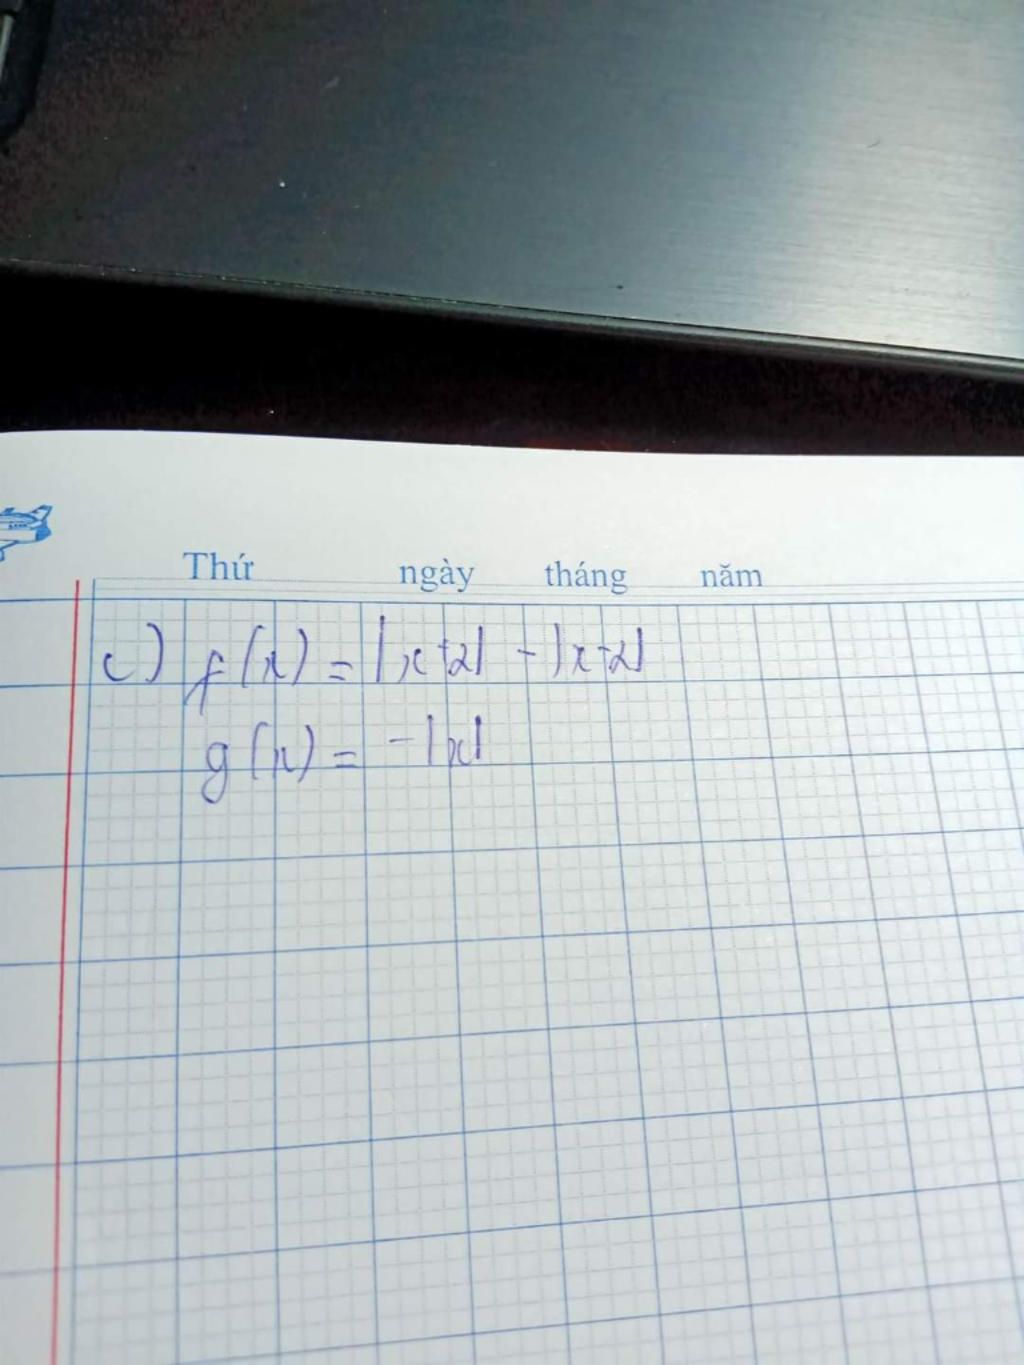 Thứ ngày tháng năm
c) f(x) = |x+2| - |x-2|
g(x) = -|x|